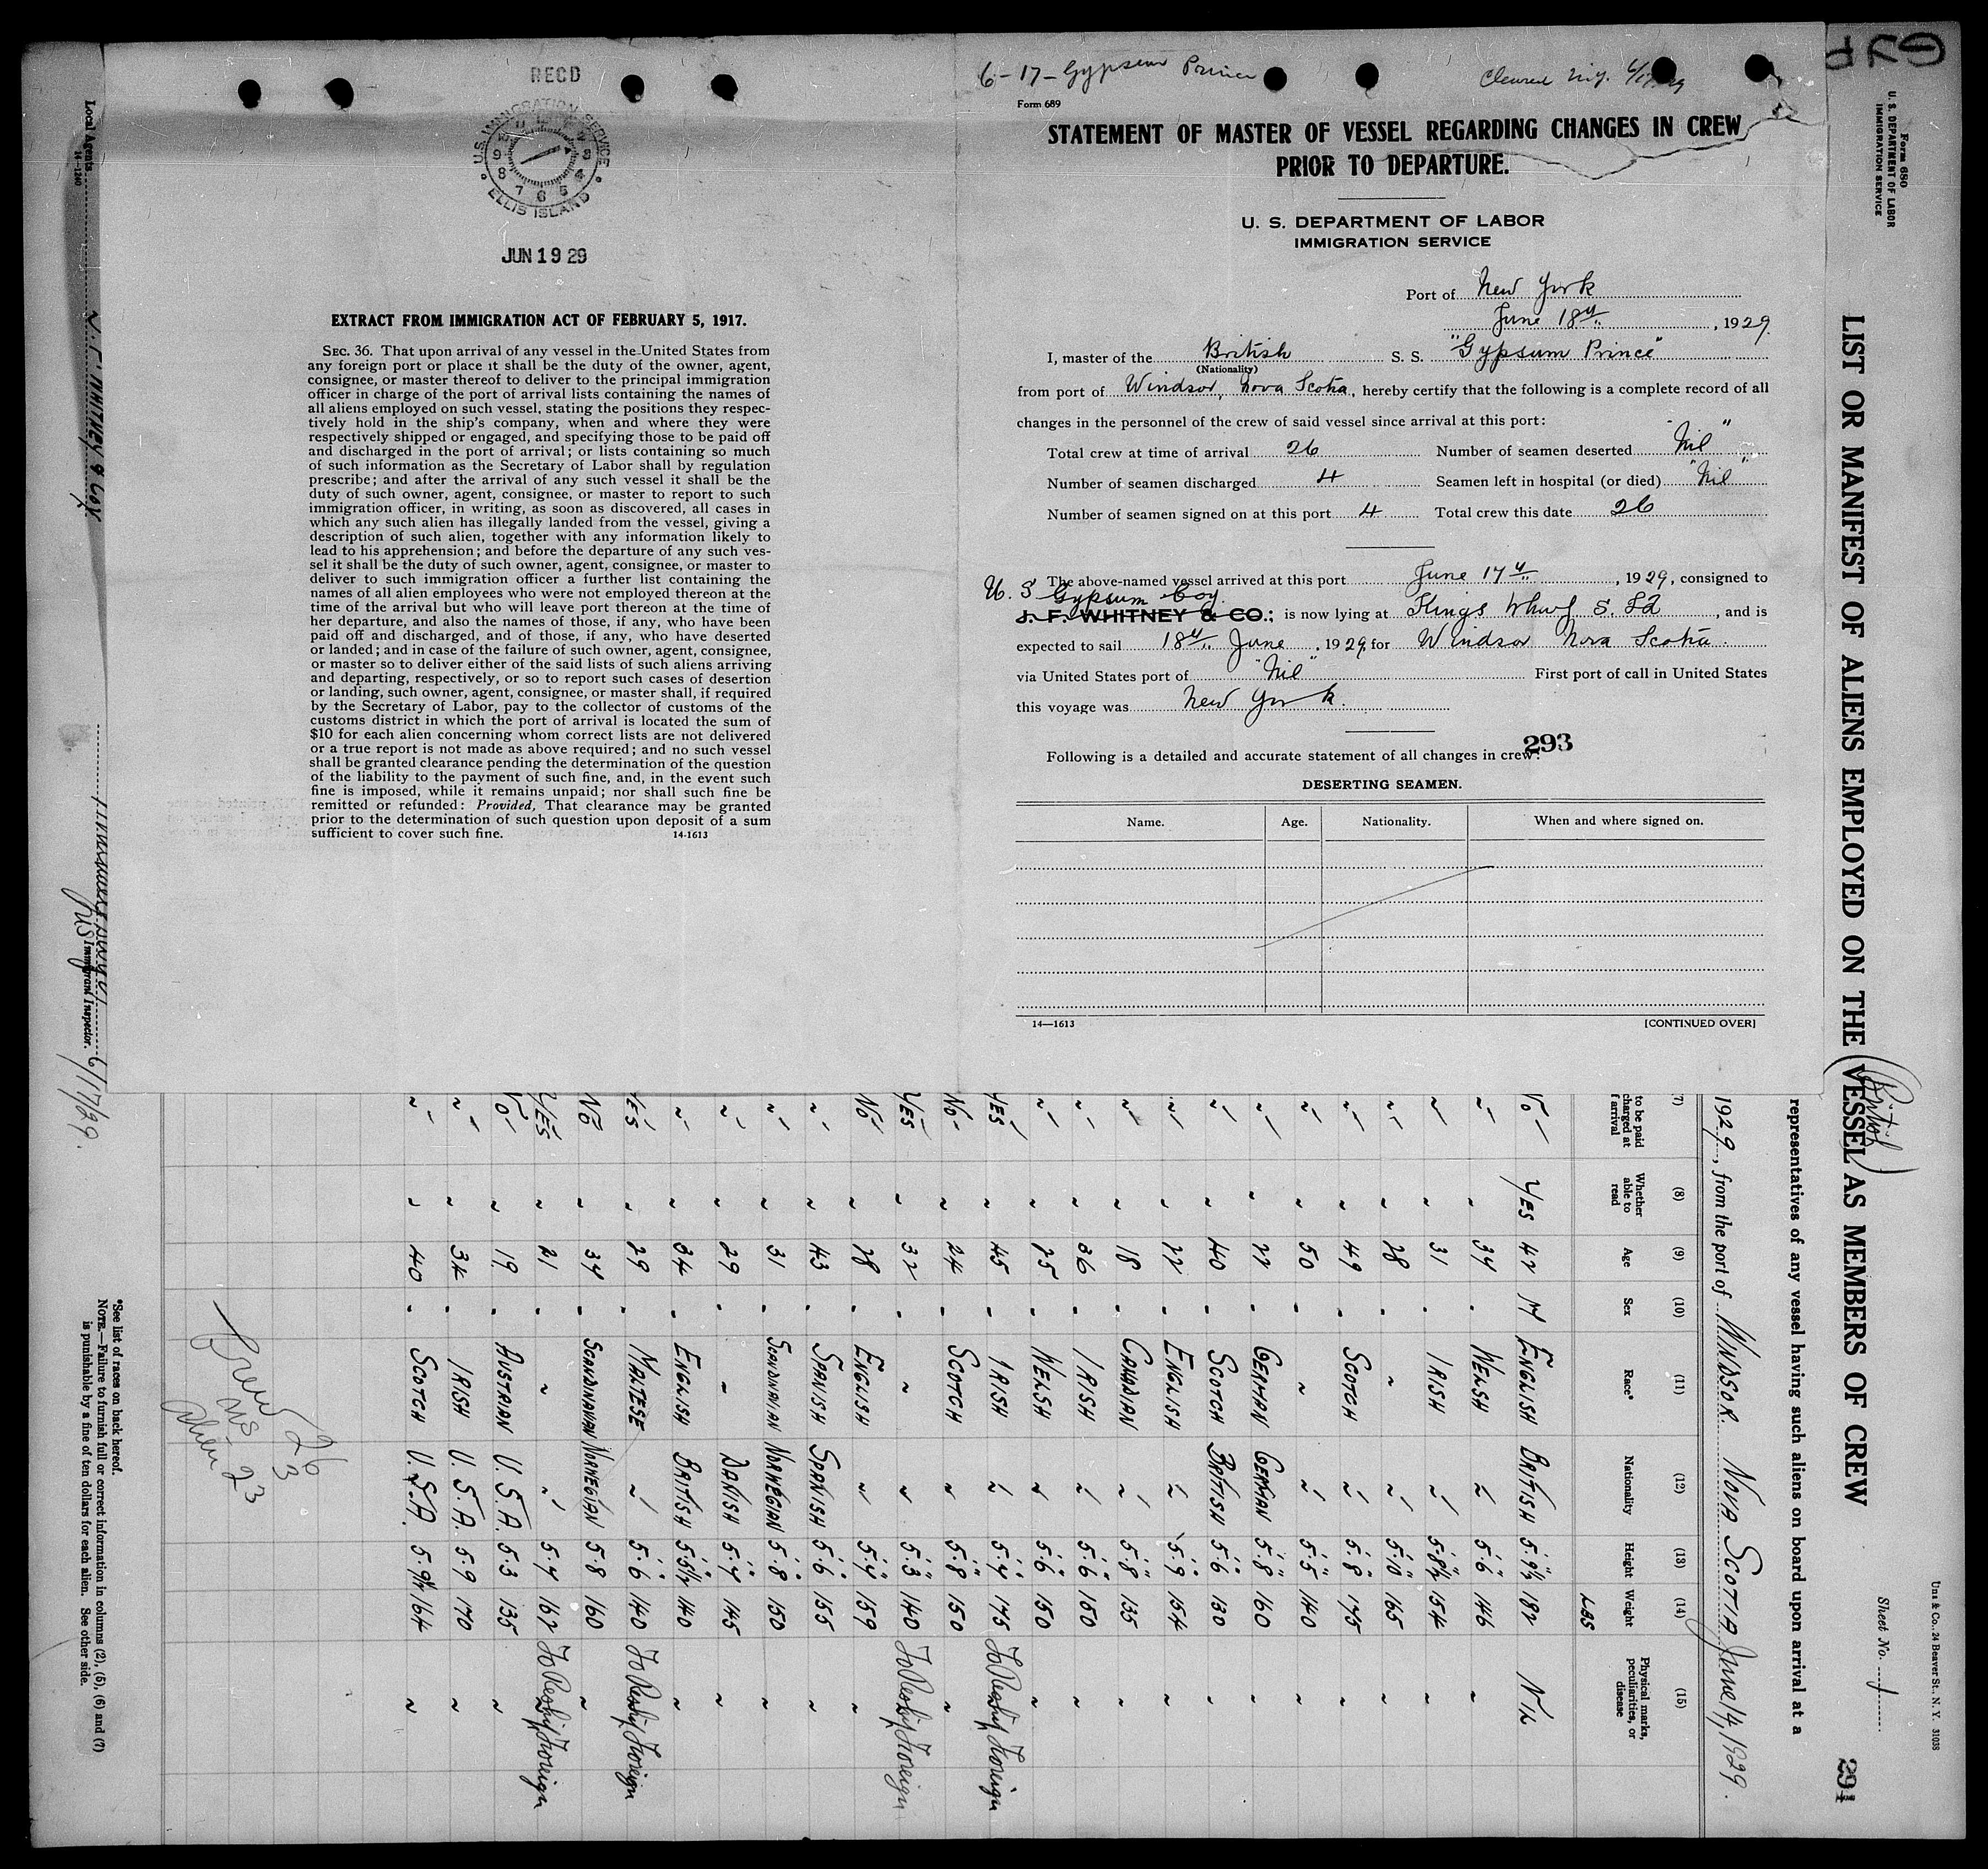 RECD
U.S. IMMIGRATION SERVICE
ELLIS ISLAND
JUN 19 29
EXTRACT FROM IMMIGRATION ACT OF FEBRUARY 5, 1917.
SEC. 36. That upon arrival of any vessel in the United States from
any foreign port or place it shall be the duty of the owner, agent,
consignee, or master thereof to deliver to the principal immigration
officer in charge of the port of arrival lists containing the names of
all aliens employed on such vessel, stating the positions they respec-
tively hold in the ship's company, when and where they were
respectively shipped or engaged, and specifying those to be paid off
and discharged in the port of arrival; or lists containing so much
of such information as the Secretary of Labor shall by regulation
prescribe; and after the arrival of any such vessel it shall be the
duty of such owner, agent, consignee, or master to report to such
immigration officer, in writing, as soon as discovered, all cases in
which any such alien has illegally landed from the vessel, giving a
description of such alien, together with any information likely to
lead to his apprehension; and before the departure of any such ves-
sel it shall be the duty of such owner, agent, consignee, or master to
deliver to such immigration officer a further list containing the
names of all alien employees who were not employed thereon at the
time of the arrival but who will leave port thereon at the time of
her departure, and also the names of those, if any, who have been
paid off and discharged, and of those, if any, who have deserted
or landed; and in case of the failure of such owner, agent, consignee,
or master so to deliver either of the said lists of such aliens arriving
and departing, respectively, or so to report such cases of desertion
or landing, such owner, agent, consignee, or master shall, if required
by the Secretary of Labor, pay to the collector of customs of the
customs district in which the port of arrival is located the sum of
$10 for each alien concerning whom correct lists are not delivered
or a true report is not made as above required; and no such vessel
shall be granted clearance pending the determination of the question
of the liability to the payment of such fine, and, in the event such
fine is imposed, while it remains unpaid; nor shall such fine be
remitted or refunded: Provided, That clearance may be granted
prior to the determination of such question upon deposit of a sum
sufficient to cover such fine. 14-1613
6-17-Gypsum Prince
Cleared
Form 689
STATEMENT OF MASTER OF VESSEL REGARDING CHANGES IN CREW
PRIOR TO DEPARTURE.
U. S. DEPARTMENT OF LABOR
IMMIGRATION SERVICE
Port of New York
June 18th, 1929.
I, master of the British S. S. "Gypsum Prince"
(Nationality)
from port of Windsor, Nova Scotia, hereby certify that the following is a complete record of all
changes in the personnel of the crew of said vessel since arrival at this port:
Total crew at time of arrival 26 Number of seamen deserted "Nil"
Number of seamen discharged 4 Seamen left in hospital (or died) "Nil"
Number of seamen signed on at this port 4 Total crew this date 26
The above-named vessel arrived at this port June 17th, 1929, consigned to
U. S Gypsum Coy
J. F. WHITNEY & CO.; is now lying at Kings Whrf S. Id, and is
expected to sail 18th June, 1929, for Windsor Nova Scotia
via United States port of "Nil" First port of call in United States
this voyage was New York.
293
Following is a detailed and accurate statement of all changes in crew:
DESERTING SEAMEN.
Name. Age. Nationality. When and where signed on.
14—1613 [CONTINUED OVER]
GYP
Form 680
U. S. DEPARTMENT OF LABOR
IMMIGRATION SERVICE
Unz & Co., 24 Beaver St., N. Y. 31038
Sheet No. 1
294
LIST OR MANIFEST OF ALIENS EMPLOYED ON THE VESSEL AS MEMBERS OF CREW
(British)
representatives of any vessel having such aliens on board upon arrival at a
1929, from the port of WINDSOR NOVA SCOTIA June 14, 1929.
(7) (8) (9) (10) (11) (12) (13) (14) (15)
to be paid
charged at
f arrival
Whether
able to
read
Age
Sex
Race*
Nationality
Height
Weight
Physical marks,
peculiarities, or
disease
LBS
No YES 42 M ENGLISH BRITISH 5.9½ 182 NIL
" " 34 " WELSH " 5.6 146 "
" " 31 " IRISH " 5.8½ 154 "
" " 28 " " " 5.10 165 "
" " 49 " SCOTCH " 5.8 175 "
" " 50 " " " 5.5 140 "
" " 22 " GERMAN GERMAN 5.8 160 "
" " 40 " SCOTCH BRITISH 5.6 130 "
" " 22 " ENGLISH " 5.9 154 "
" " 18 " CANADIAN " 5.8 135 "
" " 36 " IRISH " 5.6 150 "
" " 25 " WELSH " 5.6 150 "
YES " 45 " IRISH " 5.4 175 To Reship Foreign
No " 24 " SCOTCH " 5.8 150 "
YES " 32 " " " 5.3 140 To Reship Foreign
No " 28 " ENGLISH " 5.4 159 "
" " 43 " SPANISH SPANISH 5.6 155 "
" " 31 " SCANDINAVIAN NORWEGIAN 5.8 150 "
" " 29 " " DANISH 5.4 145 "
" " 34 " ENGLISH BRITISH 5.5½ 140 "
YES " 29 " MALTESE " 5.6 140 To Reship Foreign
No " 34 " SCANDINAVIAN NORWEGIAN 5.8 160 "
YES " 21 " " " 5.7 162 To Reship Foreign
No " 19 " AUSTRIAN U.S.A. 5.3 135 "
" " 34 " IRISH U.S.A. 5.9 170 "
" " 40 " SCOTCH U.S.A. 164 "
Crew 26
US 3
Alien 23
*See list of races on back hereof.
NOTE.—Failure to furnish full or correct information in columns (2), (5), (6) and (7)
is punishable by a fine of ten dollars for each alien. See other side.
Local Agents
14-1240
J. F. WHITNEY & COY
Immigrant Inspector.
6/17/29.